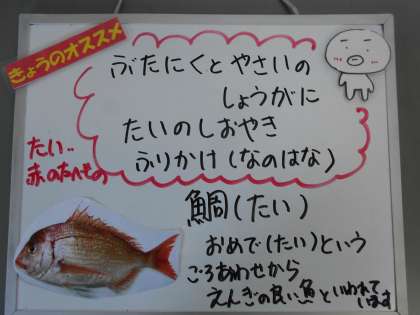 きょうのオススメ
ぶたにくとやさいの
しょうがに
たいのしおやき
ふりかけ(なのはな)
たい‥
赤のたべもの
鯛(たい)
おめで(たい)という
ごろあわせから
えんぎの良い魚といわれて
います